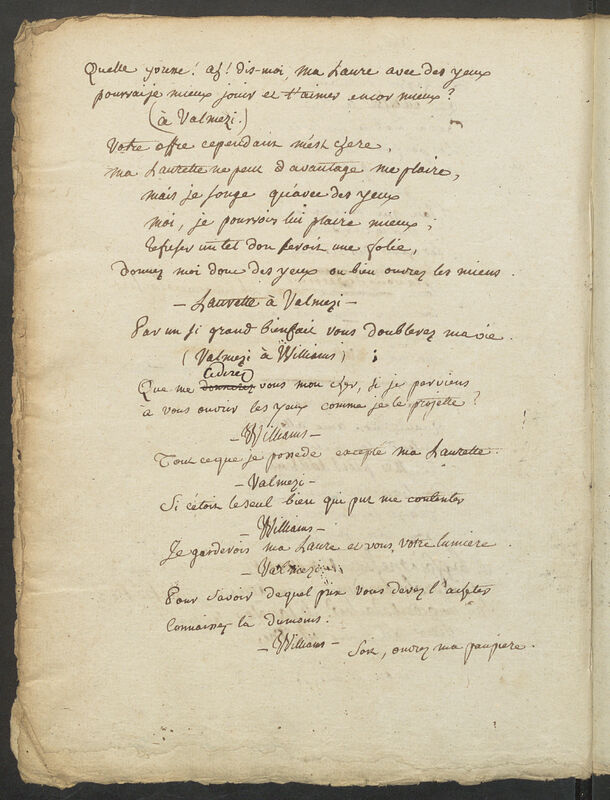 Quelle yvresse! ah! dis-moi, ma Laure avec des yeux
pourrai je mieux jouir et t'aimer encor mieux?
(à Valmezi.)
Votre offre cependant m'est chere,
ma Laurette ne peut d'avantage me plaire,
mais je songe qu'avec des yeux
moi, je pourrois lui plaire mieux;
refuser un tel don seroit une folie,
donnez moi donc des yeux ou bien ouvrez les miens.
- Laurette à Valmezi -
Par un si grand bienfait vous doublerez ma vie.
(Valmezi à Williams);
cederez
Que me donnerez vous mon cher, si je parviens
à vous ouvrir les yeux comme je le projette?
- Williams -
Tout ce que je possede excepté ma Laurette.
- Valmezi -
Si c'étoit le seul bien qui put me contenter
- Williams -
Je garderois ma Laure et vous, votre lumiere.
- Valmezi -
Pour savoir de quel prix vous devez l'acheter
Connaissez la dumoins.
- Williams - Soit, ouvrez ma paupiere.